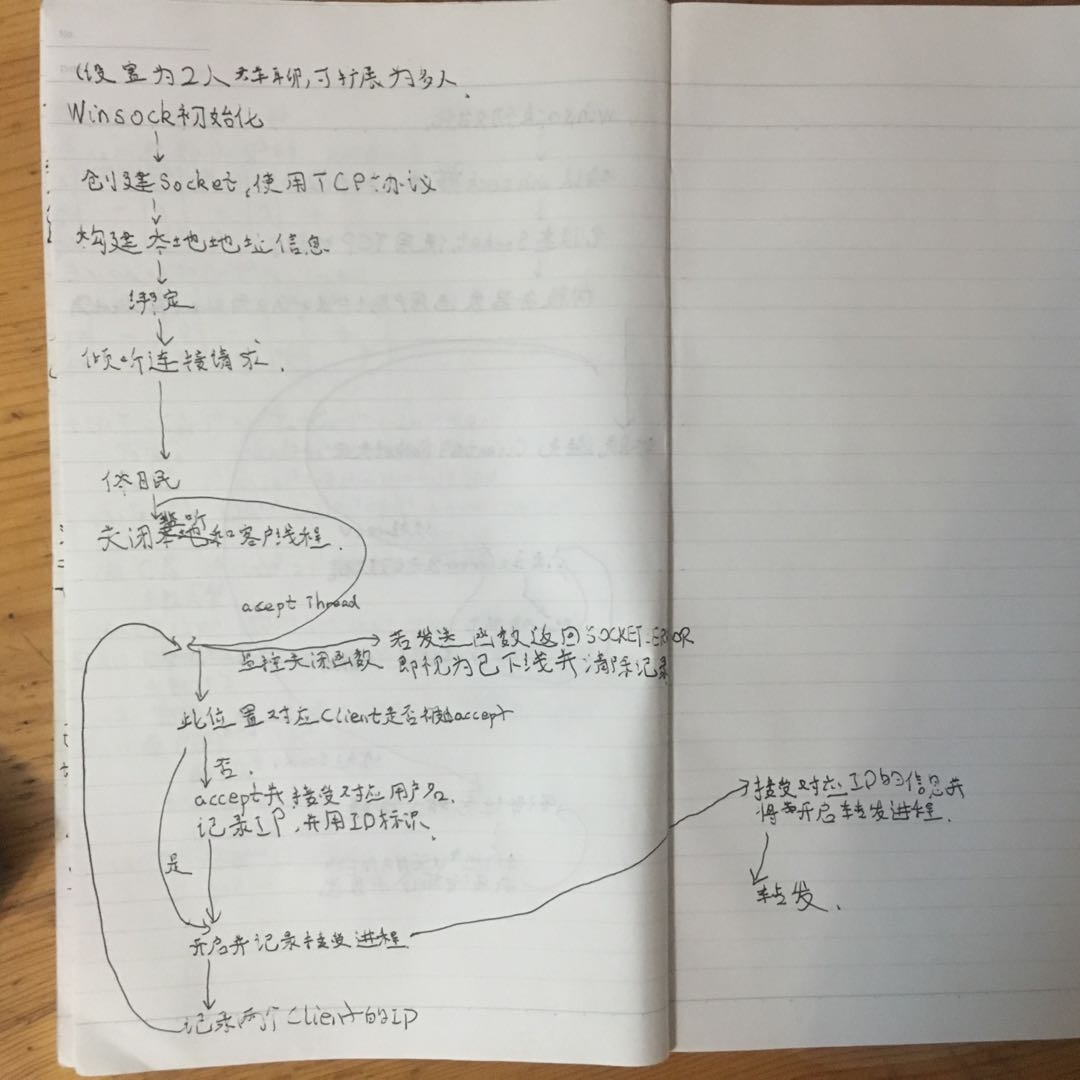 (设置为2人群聊,可扩展为多人.
Winsock初始化
创建Socket,使用TCP协议
构建本地地址信息
绑定
倾听连接请求.
休眠
关闭监听和客户线程.
acept Thread
若发送函数返回SOCKET_ERROR
监控关闭函数 即视为已下线并清除记录
此位置对应Client是否被accept
否.
accept并接受对应用户名.
记录IP,并用ID标识.
是
开启并记录接受进程
记录两个Client的IP
接受对应ID的信息并
将开启转发进程.
转发.